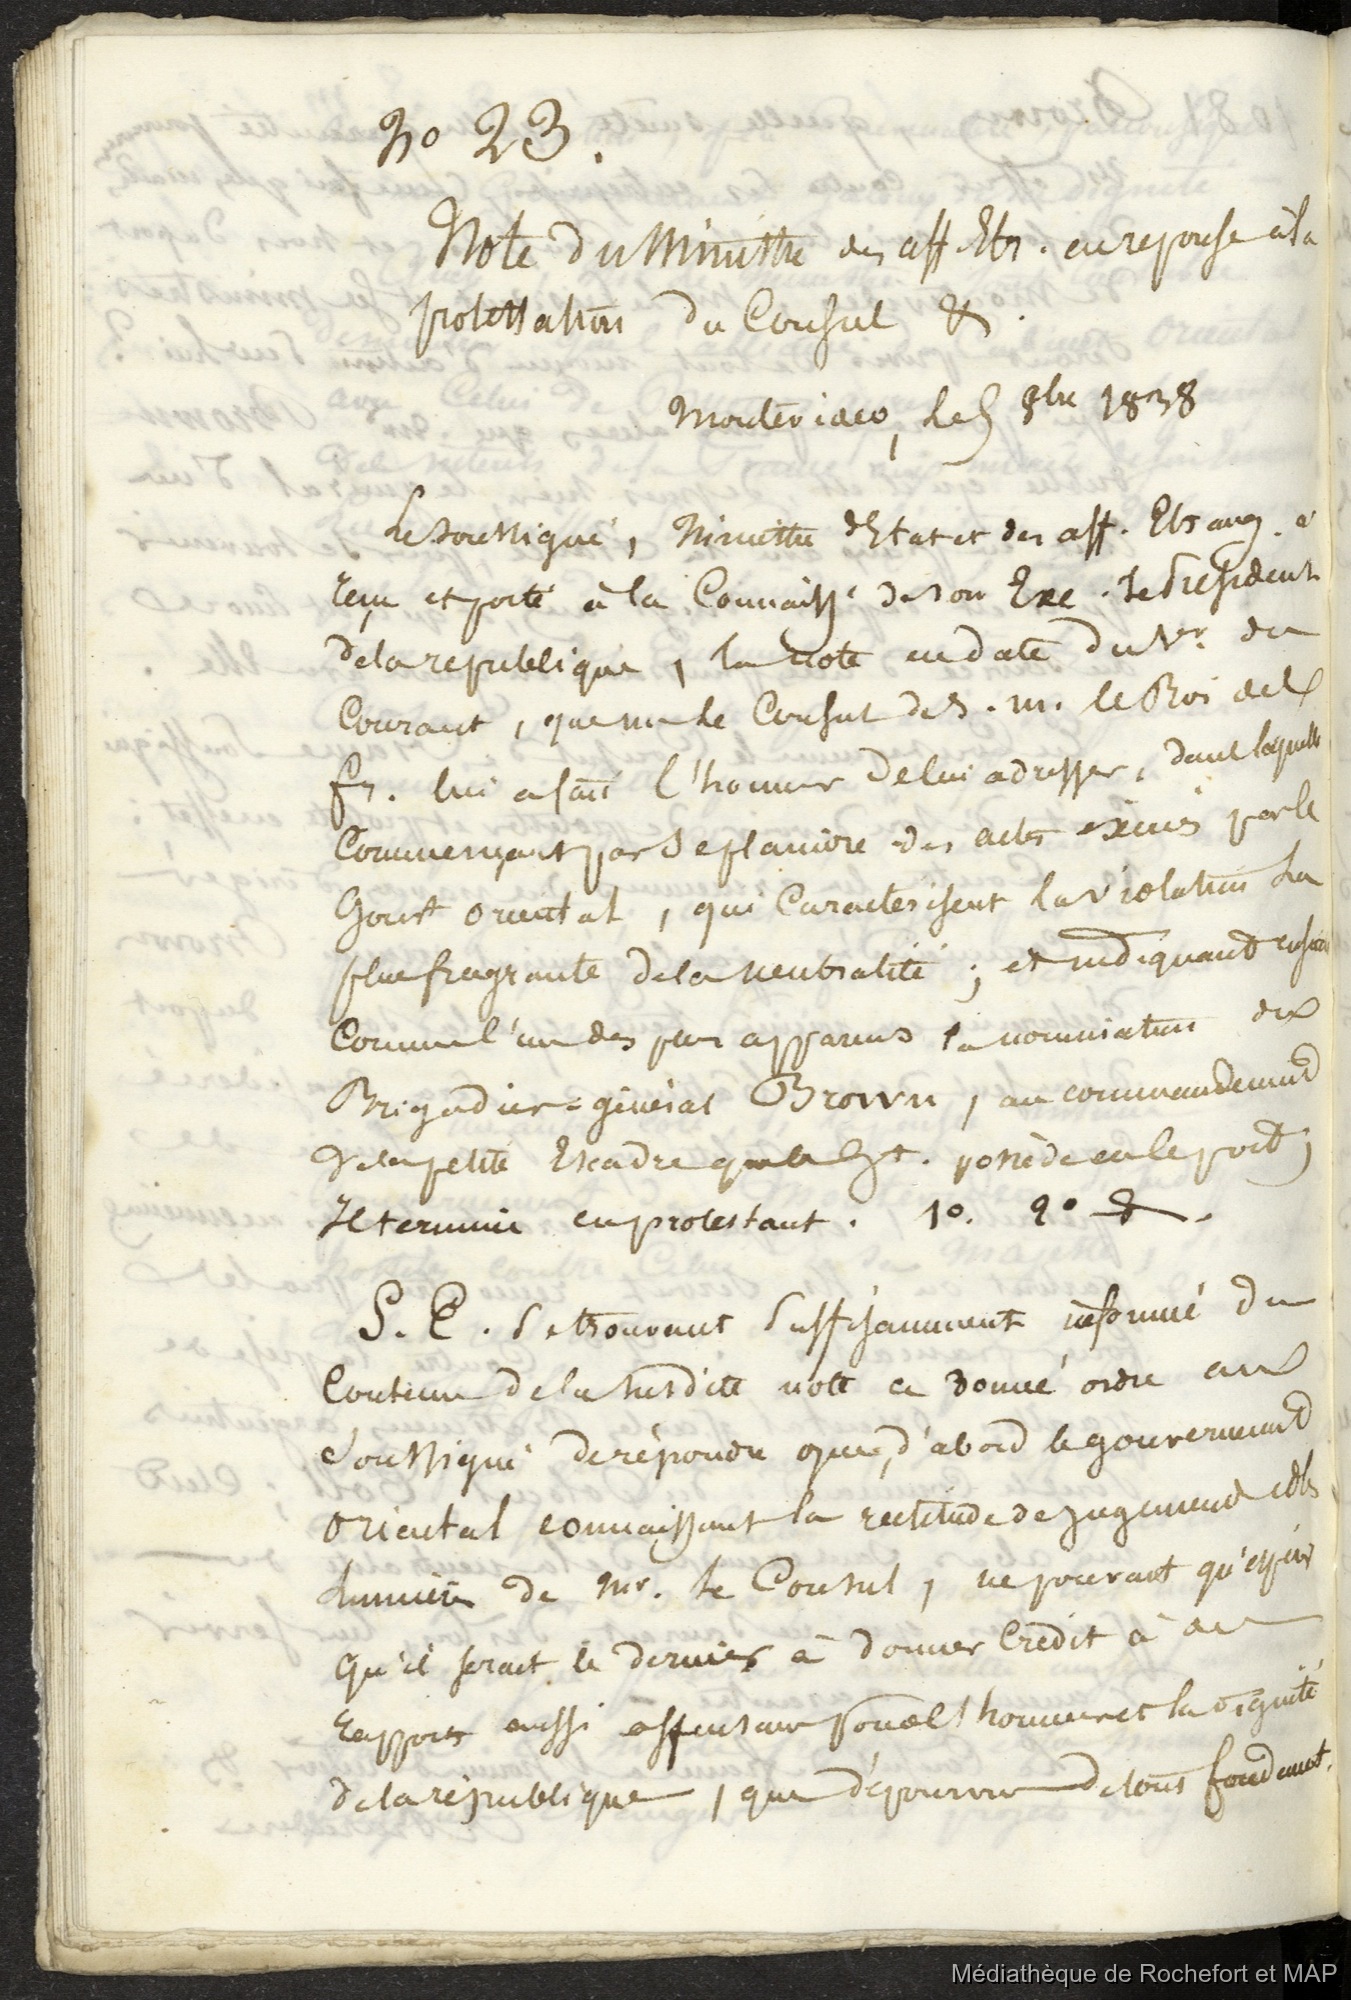 No 23.
Note du Ministre des aff. Etr. en reponse à la
protestation du Consul &.
Montevideo, le 8bre 1838
Le soussigné, Ministre d'Etat et des aff. Etrang. a
reçu et porté à la Connaisse. de son Exc. le President
de la republique, la note en date du 1er. du
Courant, que mr le Consul de S. m. le Roi des
fr. lui a fait l'honneur de lui adresser, dans laquelle
Commençant par se plaindre des actes par le
Gouvt oriental, qui Caracterisent la violation la
plus fragrante de la neutralité; et indiquant
Comme l'un des plus apparens la nomination du
Brigadier-général Brown, au commandement
de la petite Escadre que le Gt. possède en le port;
Il termine en protestant. 1o. 2o &.
S. E. se trouvant suffisamment informé du
Contenu de la susdite note a donné ordre au
Soussigné de répondre que, d'abord le gouvernement
oriental connaissant la rectitude de jugement et les
lumières de Mr. le Consul, ne pouvant qu'espérer
qu'il serait le dernier à donner Crédit à des
rapports aussi offensans pour l'honneur et la dignité
de la république, que dépourvus de tous fondement.
Médiathèque de Rochefort et MAP